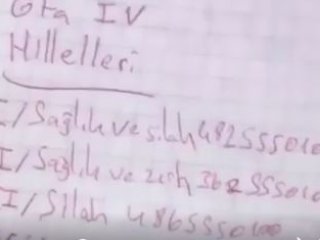 Gta IV
Hilleleri
I/Sağlık ve silah 4825550100
I/Sağlık ve zırh 3625550100
I/Silah 4865550100